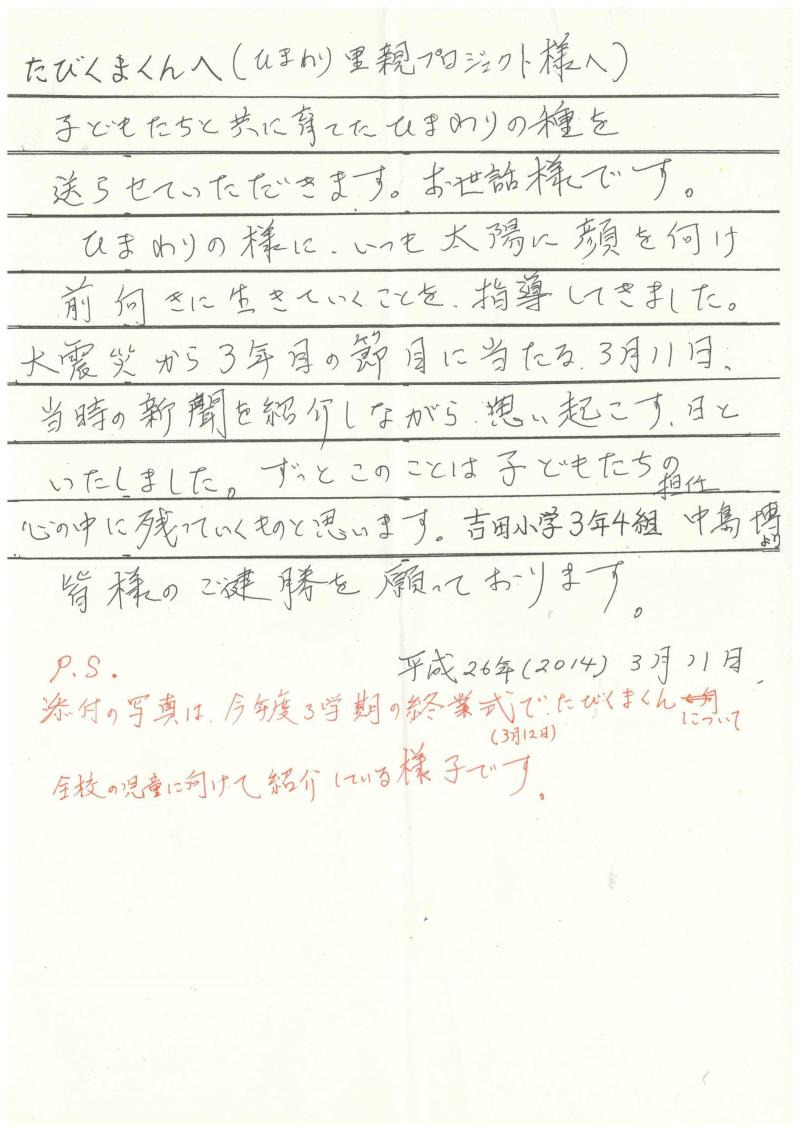 たびくまくんへ(ひまわり里親プロジェクト様へ)
子どもたちと共に育てたひまわりの種を
送らせていただきます。お世話様です。
ひまわりの様に、いつも太陽に顔を向け
前向きに生きていくことを、指導してきました。
大震災から3年目の節目に当たる、3月11日、
当時の新聞を紹介しながら、思い起こす、日と
いたしました。ずっとこのことは子どもたちの
心の中に残っていくものと思います。吉田小学3年4組 担任 中島 博より
皆様のご健勝を願っております。
平成26年(2014) 3月11日
P.S.
添付の写真は、今年度3学期の終業式で、たびくまくんについて
(3月12日)
全校の児童に向けて紹介している様子です。